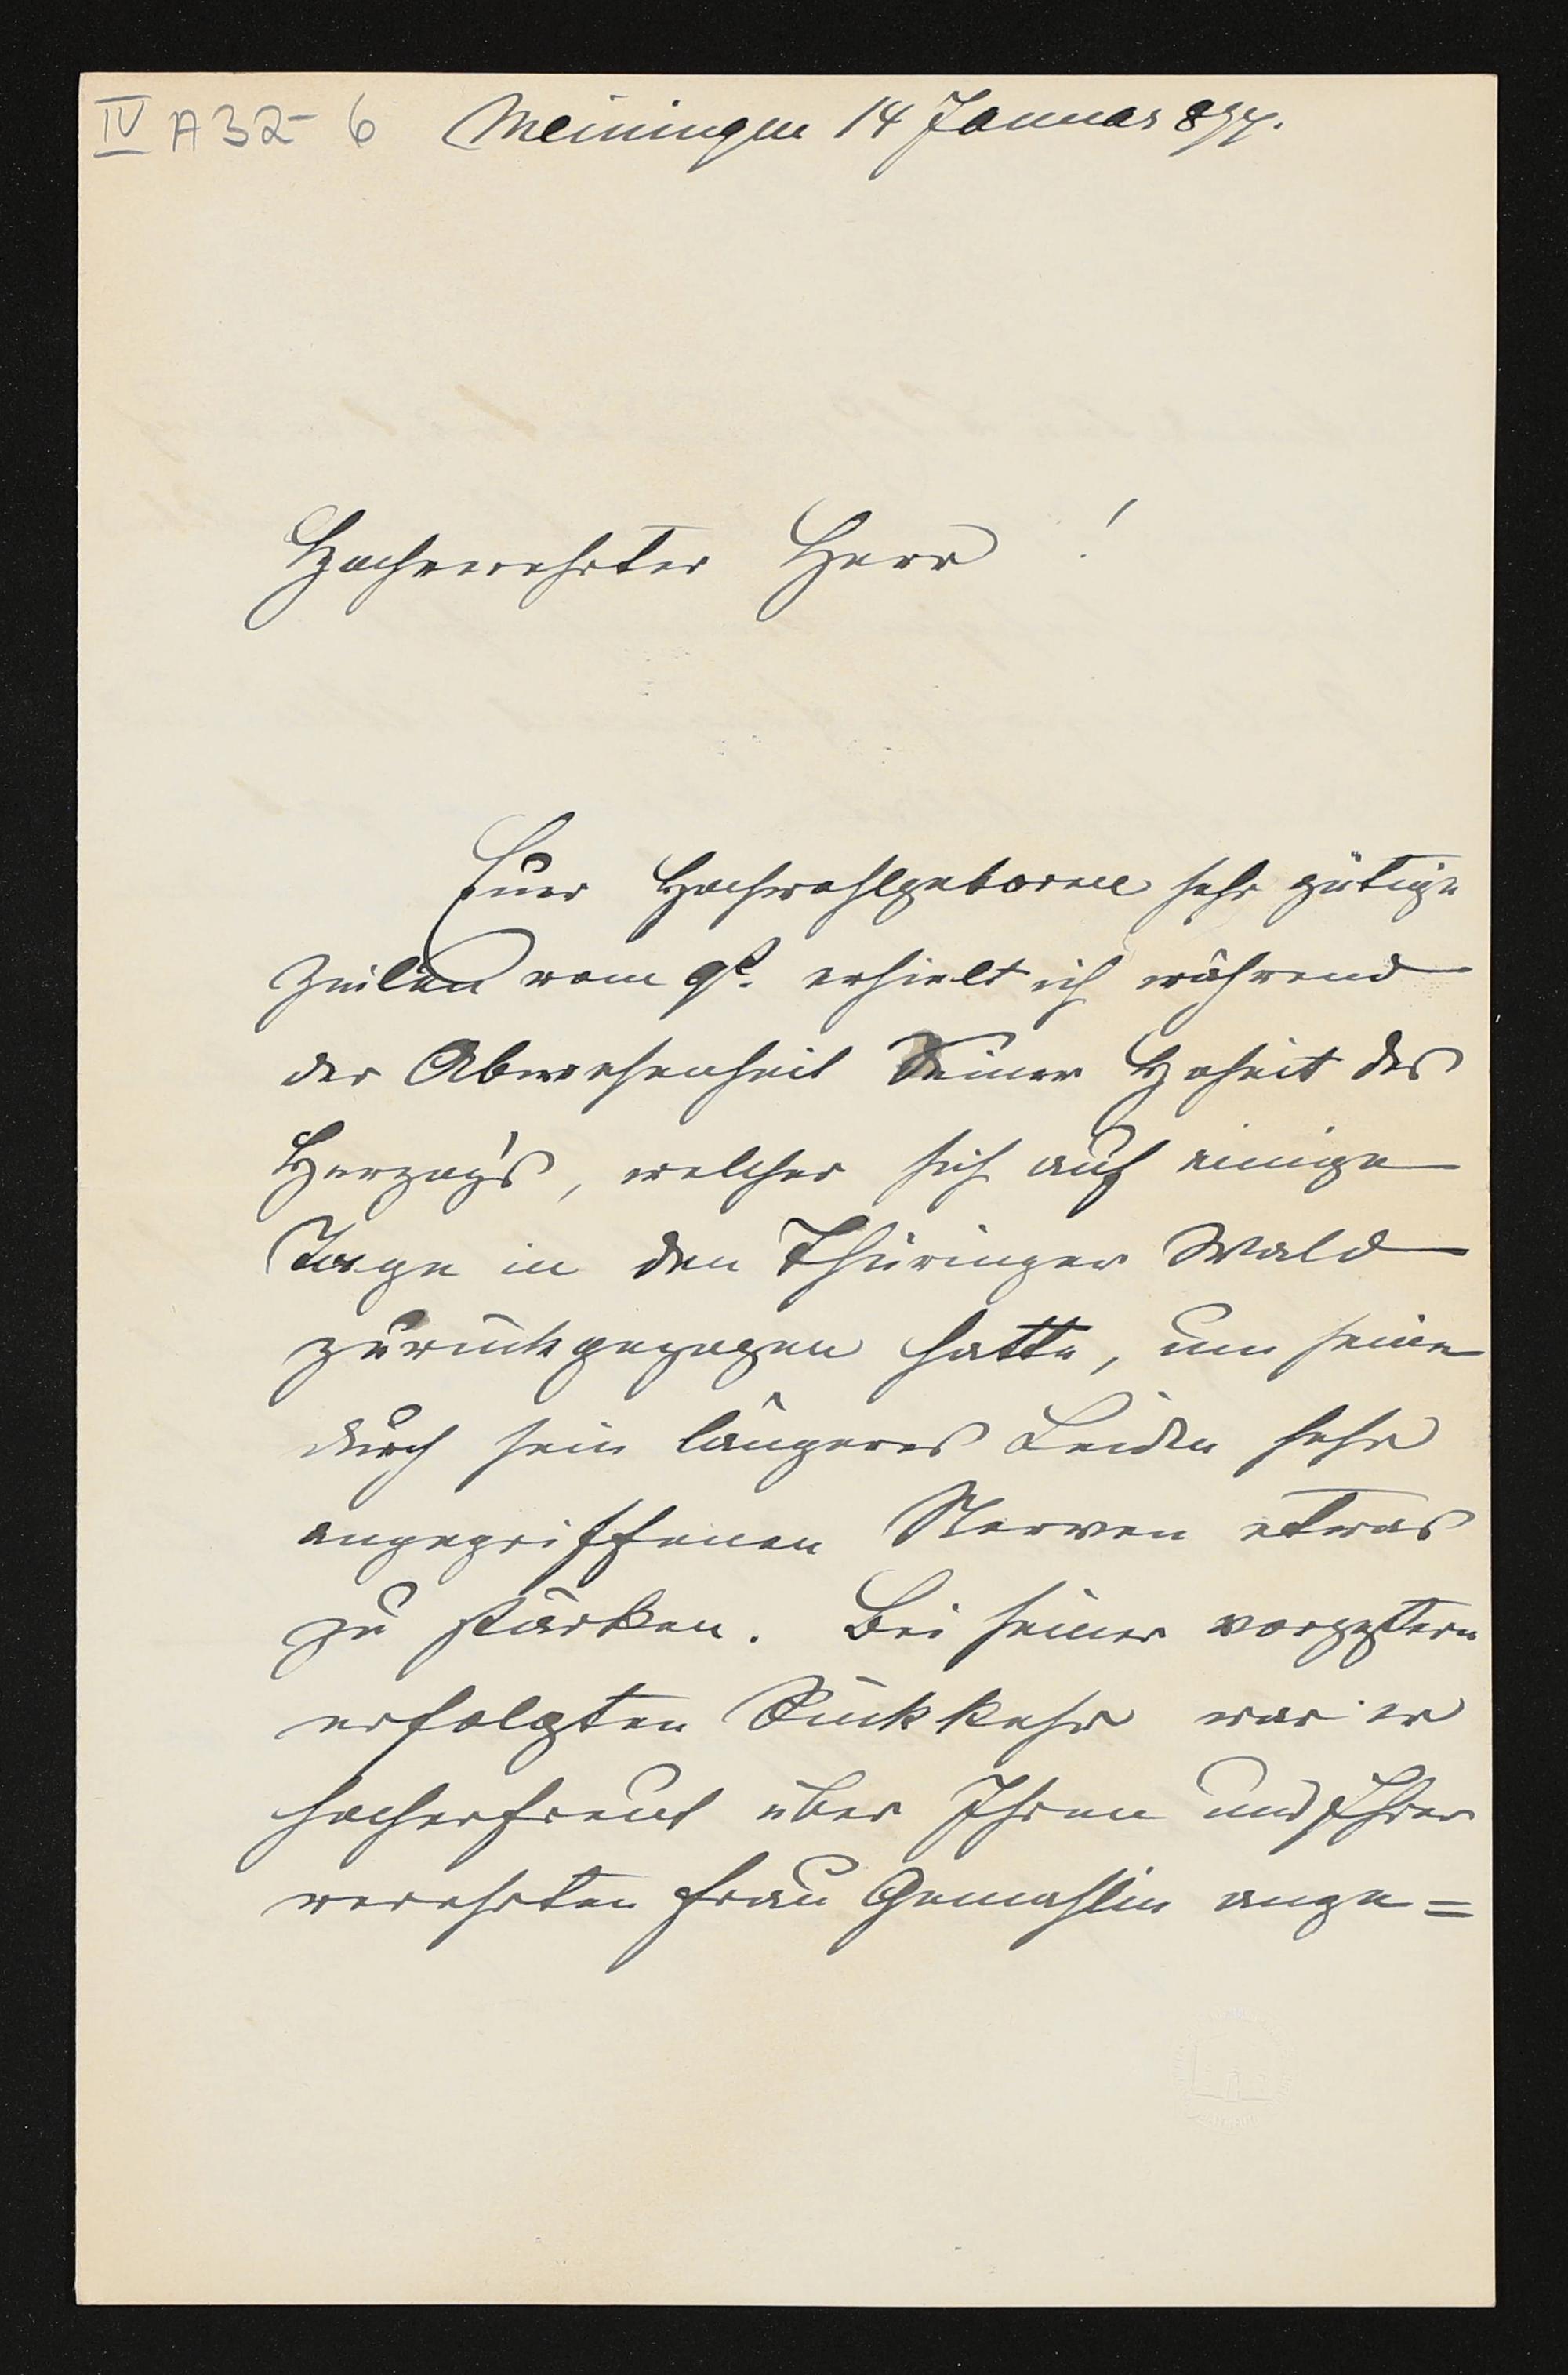 IV A 32-6 Meiningen 14 Januar 874.
Hochverehrter Herr !
Euer Hochwohlgeboren sehr gütige
Zeilen vom 9t. erhielt ich während
der Abwesenheit Seiner Hoheit des
Herzog's, welcher sich auf einige
Tage in den Thüringer Wald
zurückgezogen hatte, um seine
durch sein längeres Leiden sehr
angegriffenen Nerven etwas
zu stärken. Bei seiner vorgestern
erfolgten Rückkehr war er
hocherfreut über Ihren und Ihrer
verehrten Frau Gemahlin ange=